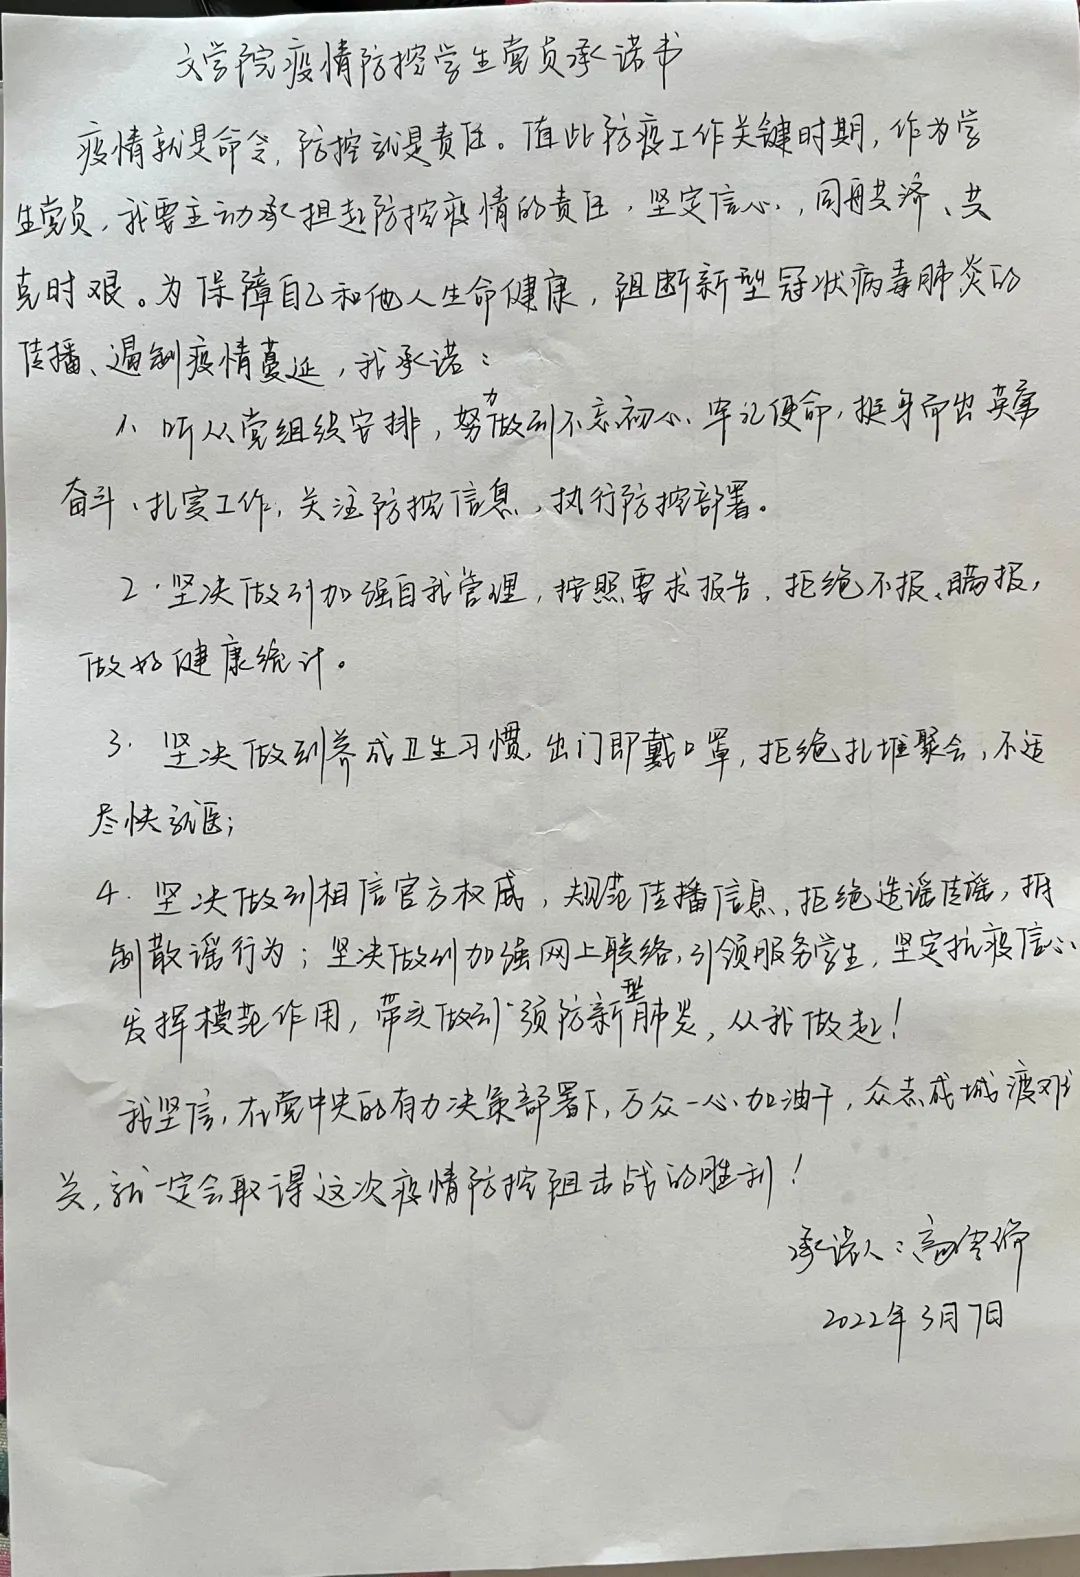 文学院疫情防控学生党员承诺书
疫情就是命令,防控就是责任。值此防疫工作关键时期,作为学
生党员,我要主动承担起防控疫情的责任,坚定信心,同舟共济、共
克时艰。为保障自己和他人生命健康,阻断新型冠状病毒肺炎的
传播、遏制疫情蔓延,我承诺:
1、听从党组织安排,努力做到不忘初心、牢记使命,挺身而出英勇
奋斗、扎实工作,关注防控信息,执行防控部署。
2.坚决做到加强自我管理,按照要求报告,拒绝不报、瞒报,
做好健康统计。
3.坚决做到养成卫生习惯,出门即戴口罩,拒绝扎堆聚会,不适
尽快就医;
4.坚决做到相信官方权威,规范传播信息、拒绝造谣传谣,抵
制散谣行为;坚决做到加强网上联络,引领服务学生,坚定抗疫信心
发挥模范作用,带头做到“预防新型肺炎,从我做起!
我坚信,在党中央的有力决策部署下,万众一心、加油干,众志成城渡难
关,就一定会取得这次疫情防控阻击战的胜利!
承诺人:高
2022年3月7日